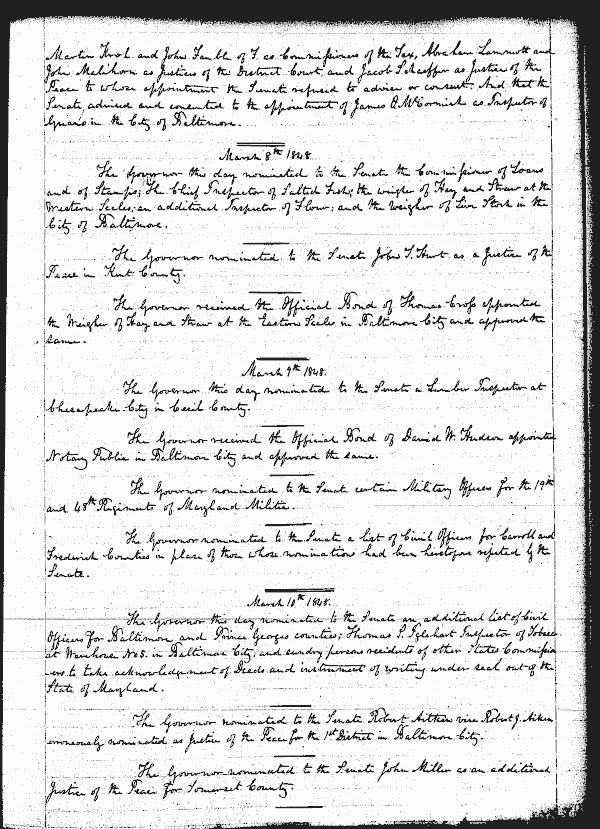 Martin Kroh and John Fauble of F. as Commissioners of the Tax, Abraham Lammott and
John Malehorn as Justices of the District Court, and Jacob Schaeffer as Justice of the
Peace to whose appointment the Senate refused to advise or consent. And that the
Senate advised and consented to the appointment of James A. McCormick as Inspector of
Guano in the City of Baltimore.
March 8th 1848
The Governor this day nominated to the Senate the Commissioner of Loans
and of Stamps; The Chief Inspector of Salted Fish; the weigher of Hay and Straw at the
Western Scales; an additional Inspector of Flour; and the Weigher of Live Stock in the
City of Baltimore.
The Governor nominated to the Senate John S. Hurt as a Justice of the
Peace in Kent County.
The Governor received the Official Bond of Thomas Cross appointed
the Weigher of Hay and Straw at the Eastern Scales in Baltimore City and approved the
same.
March 9th 1848.
The Governor this day nominated to the Senate a Lumber Inspector at
Chesapeake City in Cecil County.
The Governor received the Official Bond of David W. Hudson appointed
Notary Public in Baltimore City and approved the same.
The Governor nominated to the Senate certain Military Officers for the 19th
and 48th Regiments of Maryland Militia.
The Governor nominated to the Senate a list of Civil Officers for Carroll and
Frederick Counties in place of those whose nominations had been heretofore rejected by the
Senate.
March 10th 1848.
The Governor this day nominated to the Senate an additional list of Civil
Officers for Baltimore and Prince Georges counties; Thomas S. Iglehart Inspector of Tobacco
at Warehouse No 5. in Baltimore City, and sundry persons residents of other States Commission
-ers to take acknowledgement of Deeds and instrument of writing under seal out of the
State of Maryland.
The Governor nominated to the Senate Robert Aitken vice Robert J. Aiken
erroneously nominated as Justice of the Peace for the 1st District in Baltimore City.
The Governor nominated to the Senate John Miller as an additional
Justice of the Peace for Somerset County.